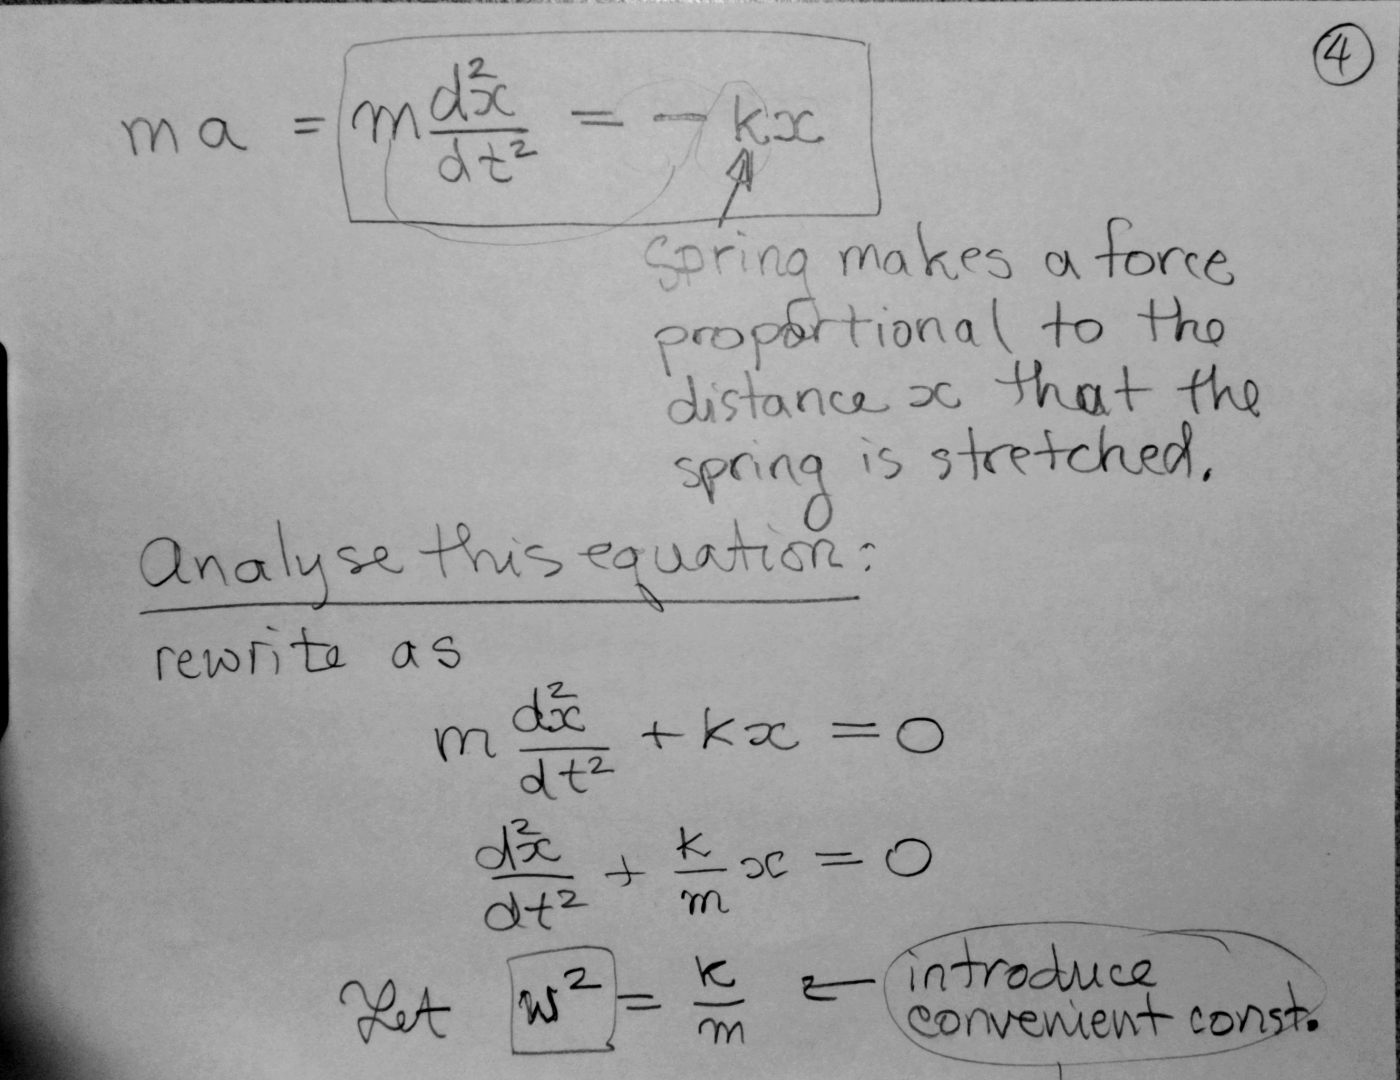 ④
ma = m d²x/dt² = - kx
spring makes a force
proportional to the
distance x that the
spring is stretched.
Analyse this equation:
rewrite as
m d²x/dt² + kx = 0
d²x/dt² + k/m x = 0
Let w² = k/m ← introduce
convenient const.